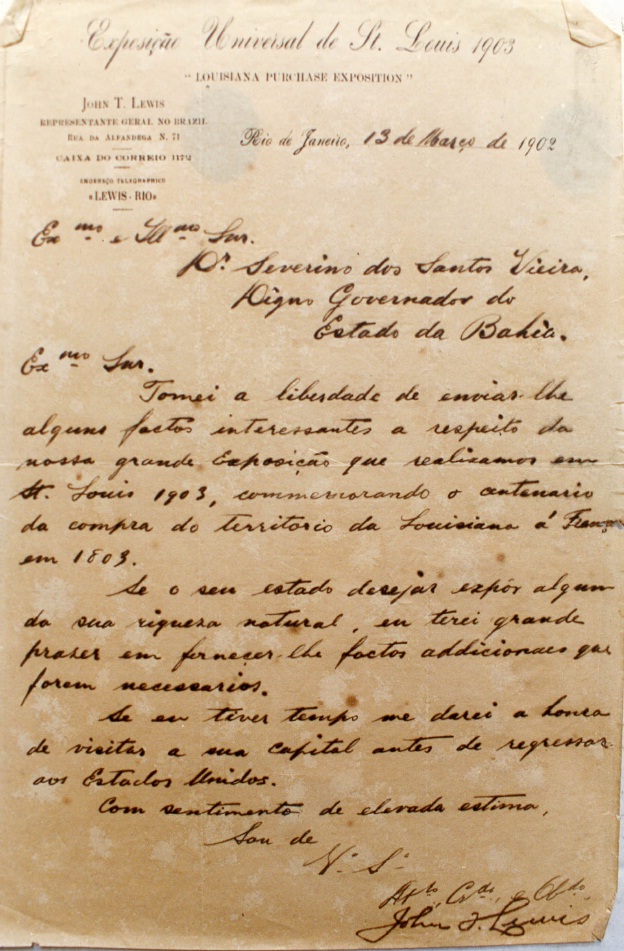 Exposição Universal de St. Louis 1903
"LOUISIANA PURCHASE EXPOSITION"
JOHN T. LEWIS
REPRESENTANTE GERAL NO BRAZIL
RUA DA ALFANDEGA N. 71
CAIXA DO CORREIO 1172
ENDEREÇO TELEGRAPHICO
«LEWIS-RIO»
Rio de Janeiro, 13 de Março de 1902
Exmo e Illmo Snr.
Dr. Severino dos Santos Vieira,
Digno Governador do
Estado da Bahia.
Exmo Snr.
Tomei a liberdade de enviar-lhe
alguns factos interessantes a respeito da
nossa grande Exposição que realizamos em
St. Louis 1903, commemorando o centenario
da compra do territorio da Louisiana á França
em 1803.
Se o seu estado desejar expôr algum
da sua riqueza natural, eu terei grande
prazer em fornecer-lhe factos addicionaes que
forem necessarios.
Se eu tiver tempo me darei a honra
de visitar a sua capital antes de regressar
aos Estados Unidos.
Com sentimento de elevada estima,
Sou de
V. S.
Atto, Crdo, e Obdo,
John T. Lewis